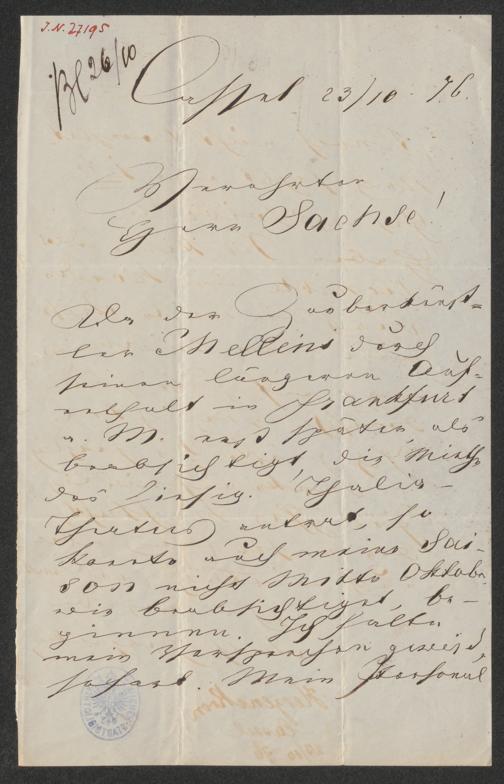 J.N. 27195
Bl 26/10
Cassel 23/10. 76.
Verehrter
Herr Sachse!
Da der Zauberkünst-
ler Mellini durch
seinen längeren Auf-
enthalt in Frankfurt
a. M. erst später, als
beabsichtigt, die Miethe
des hiesig. Thalia-
Theaters antrat, so
konnte auch meine Sai-
son nicht Mitte Oktober
wie beabsichtiget, be-
ginnen. Ich halte
mein Versprechen
sofort. Mein Personal